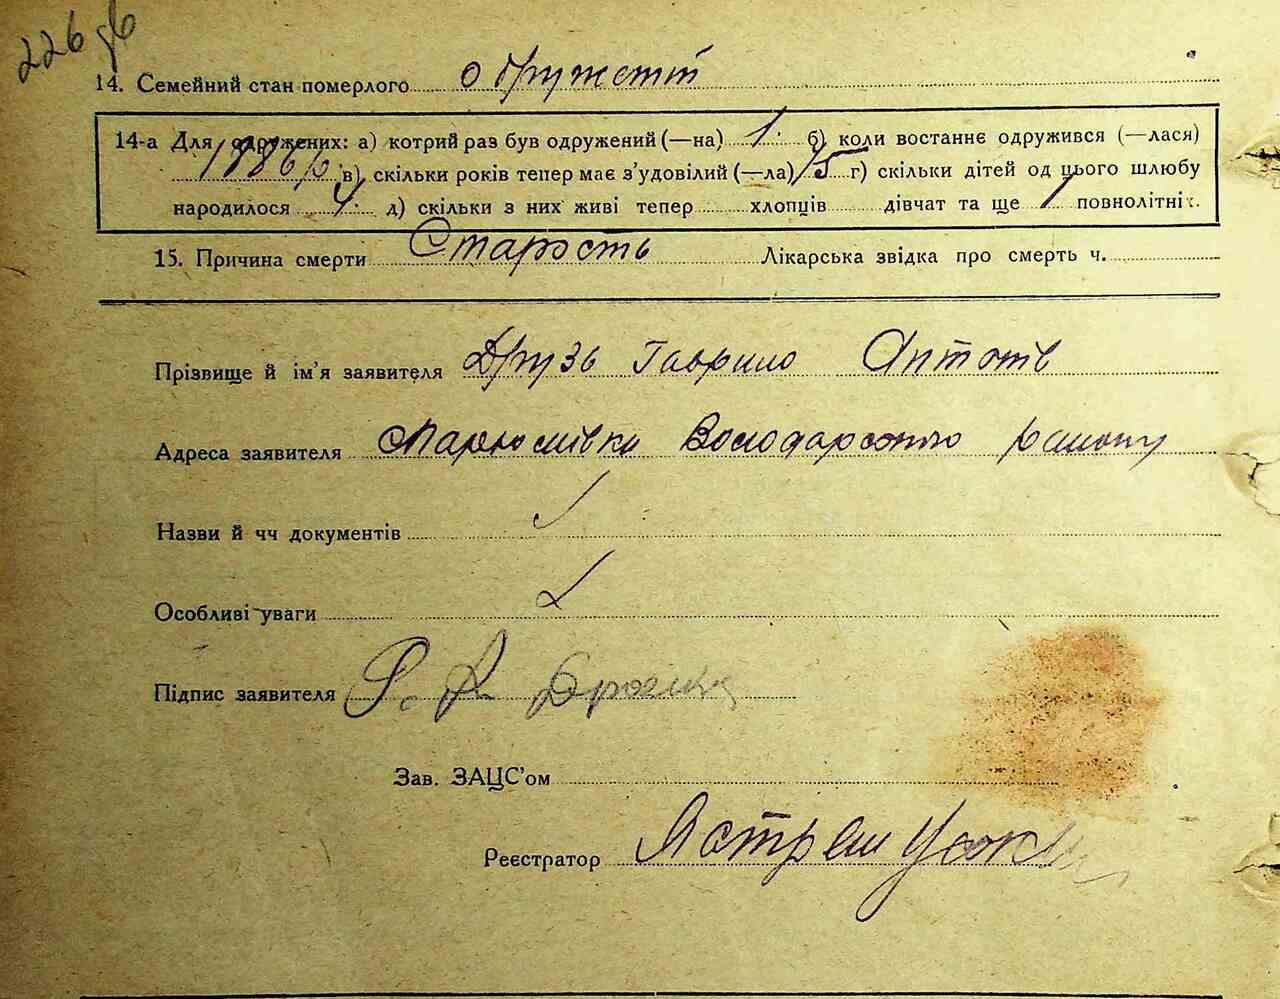 226 зв
14. Семейний стан померлого одружетий
14-а Для одружених: а) котрий раз був одружений (—на) 1. б) коли востаннє одружився (—лася)
1886 р. в) скільки років тепер має з’удовілий (—ла) 75 г) скільки дітей од цього шлюбу
народилося 4. д) скільки з них живі тепер хлопців дівчат та ще 1 повнолітніх.
15. Причина смерти Старость Лікарська звідка про смерть ч.
Прізвище й ім’я заявителя Друзь Гаврило Антонів
Адреса заявителя Володарського району
Назви й чч документів
Особливі уваги
Підпис заявителя
Зав. ЗАЦС’ом
Реєстратор